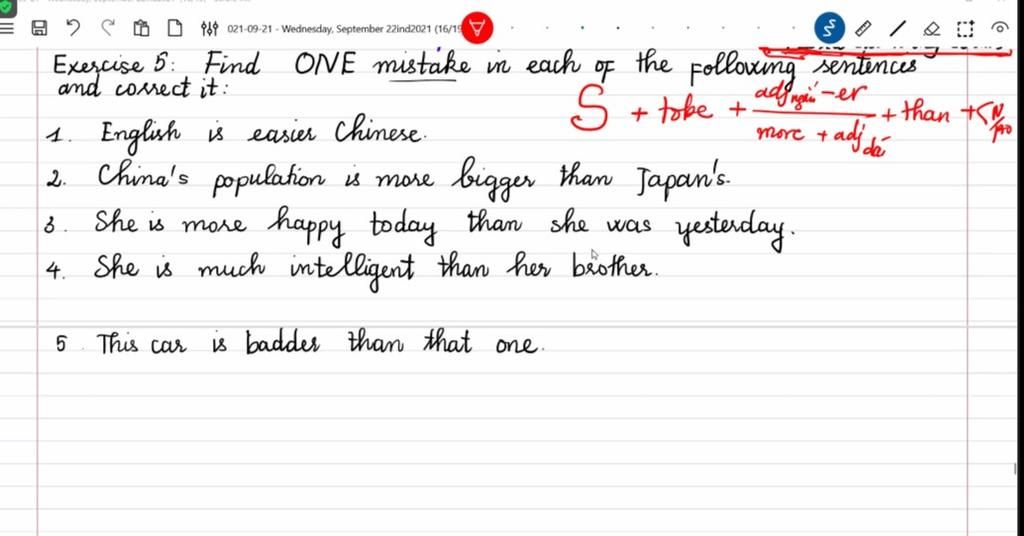 021-09-21 - Wednesday, September 22ind2021 (16/19
Exercise 5: Find ONE mistake in each of the following sentences
and correct it:
S + tobe + adj ngắn -er / more + adj dài + than + N/pro
1. English is easier Chinese.
2. China's population is more bigger than Japan's.
3. She is more happy today than she was yesterday.
4. She is much intelligent than her brother.
5. This car is badder than that one.